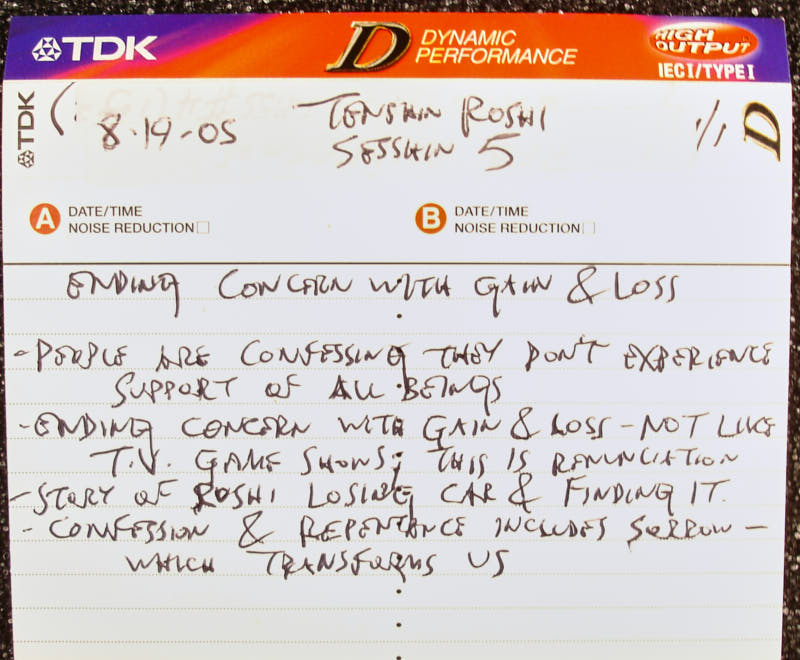 TDK D DYNAMIC PERFORMANCE HIGH OUTPUT
IEC I/TYPE I
TDK 8-19-05 TENSHIN ROSHI 1/1 D
SESSHIN 5
A DATE/TIME B DATE/TIME
NOISE REDUCTION NOISE REDUCTION
ENDING CONCERN WITH GAIN & LOSS
- PEOPLE ARE CONFESSING THEY DON'T EXPERIENCE
SUPPORT OF ALL BEINGS
- ENDING CONCERN WITH GAIN & LOSS - NOT LIKE
T.V. GAME SHOWS; THIS IS RENUNCIATION
- STORY OF ROSHI LOSING CAR & FINDING IT.
- CONFESSION & REPENTANCE INCLUDES SORROW -
WHICH TRANSFORMS US